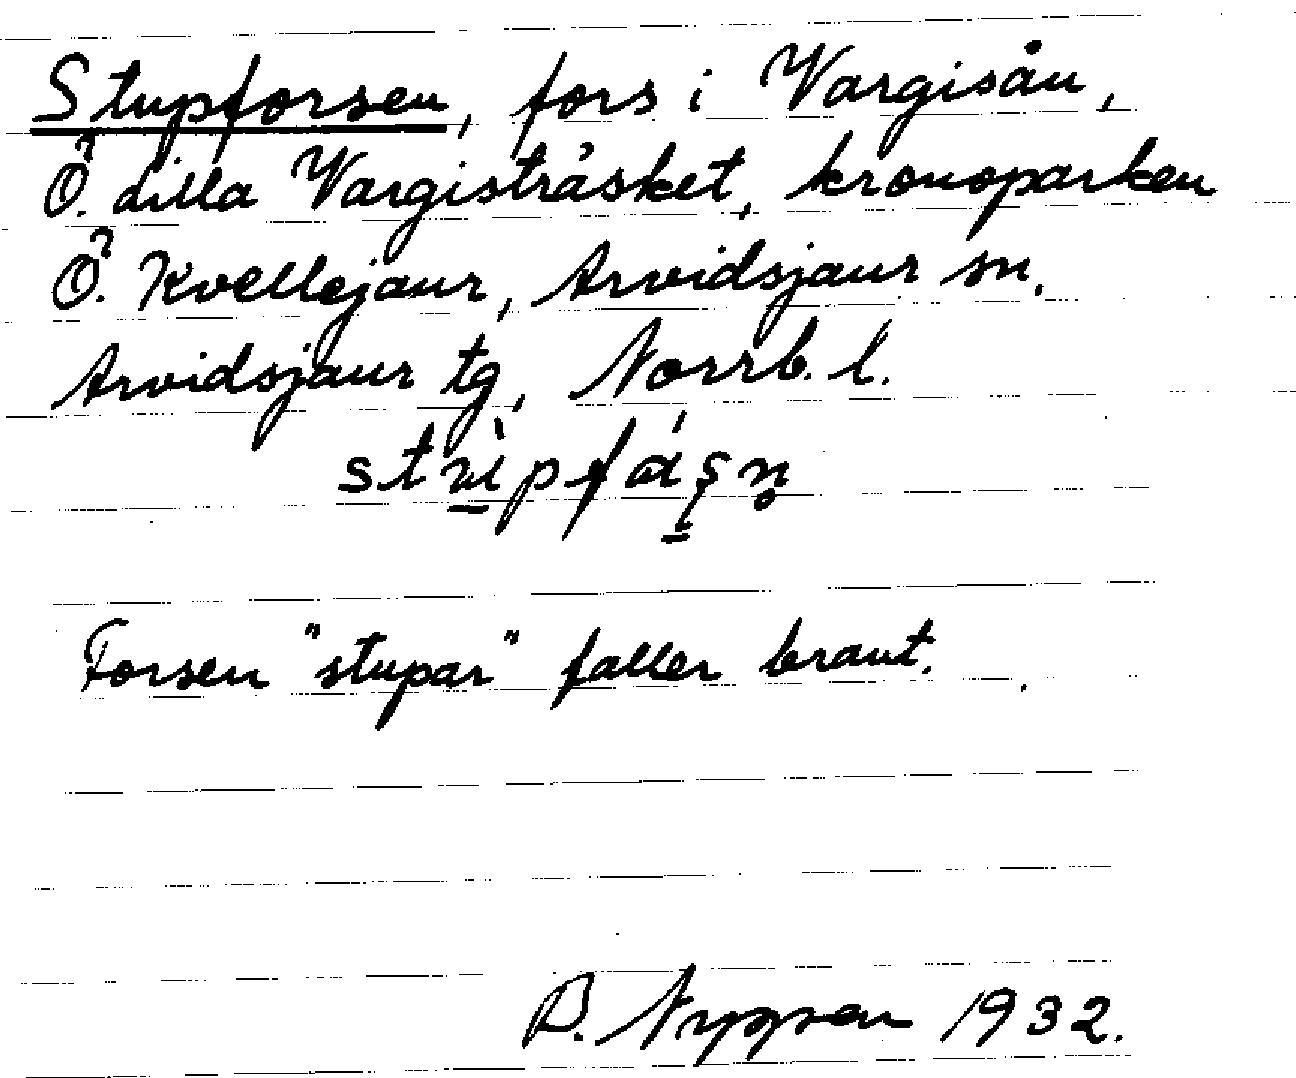 Stupforsen, fors i Vargisån,
Ö. Lilla Vargisträsket, kronoparken
Ö. Kvellejaur, Arvidsjaur sn.
Arvidsjaur tg, Norrb. l.
Forsen "stupar" faller brant.
1932.